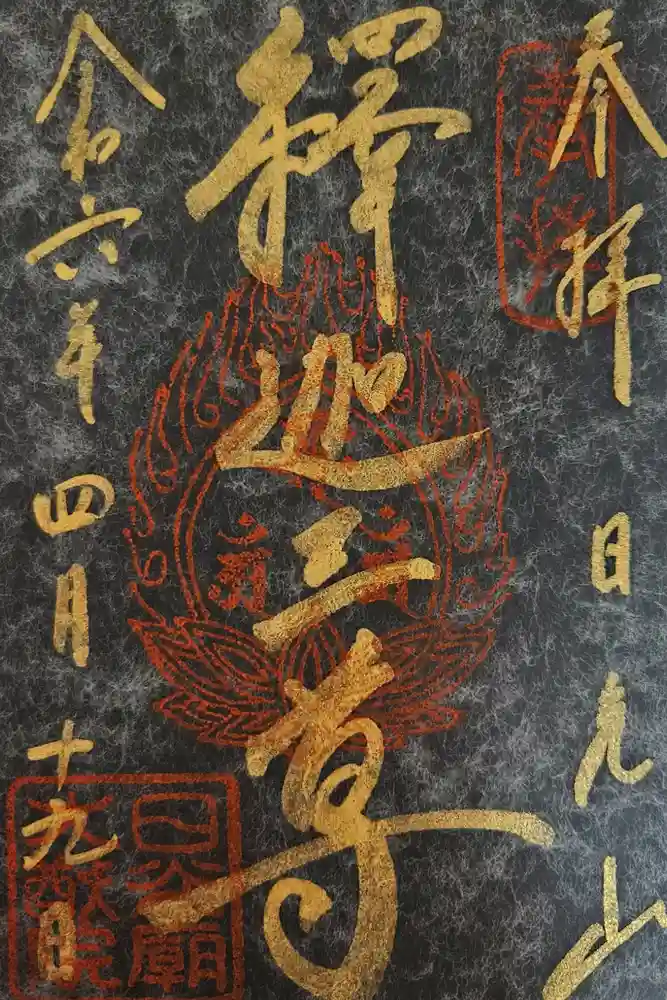 奉拝 日光山
釋迦三尊
令和六年四月十九日
大猷院